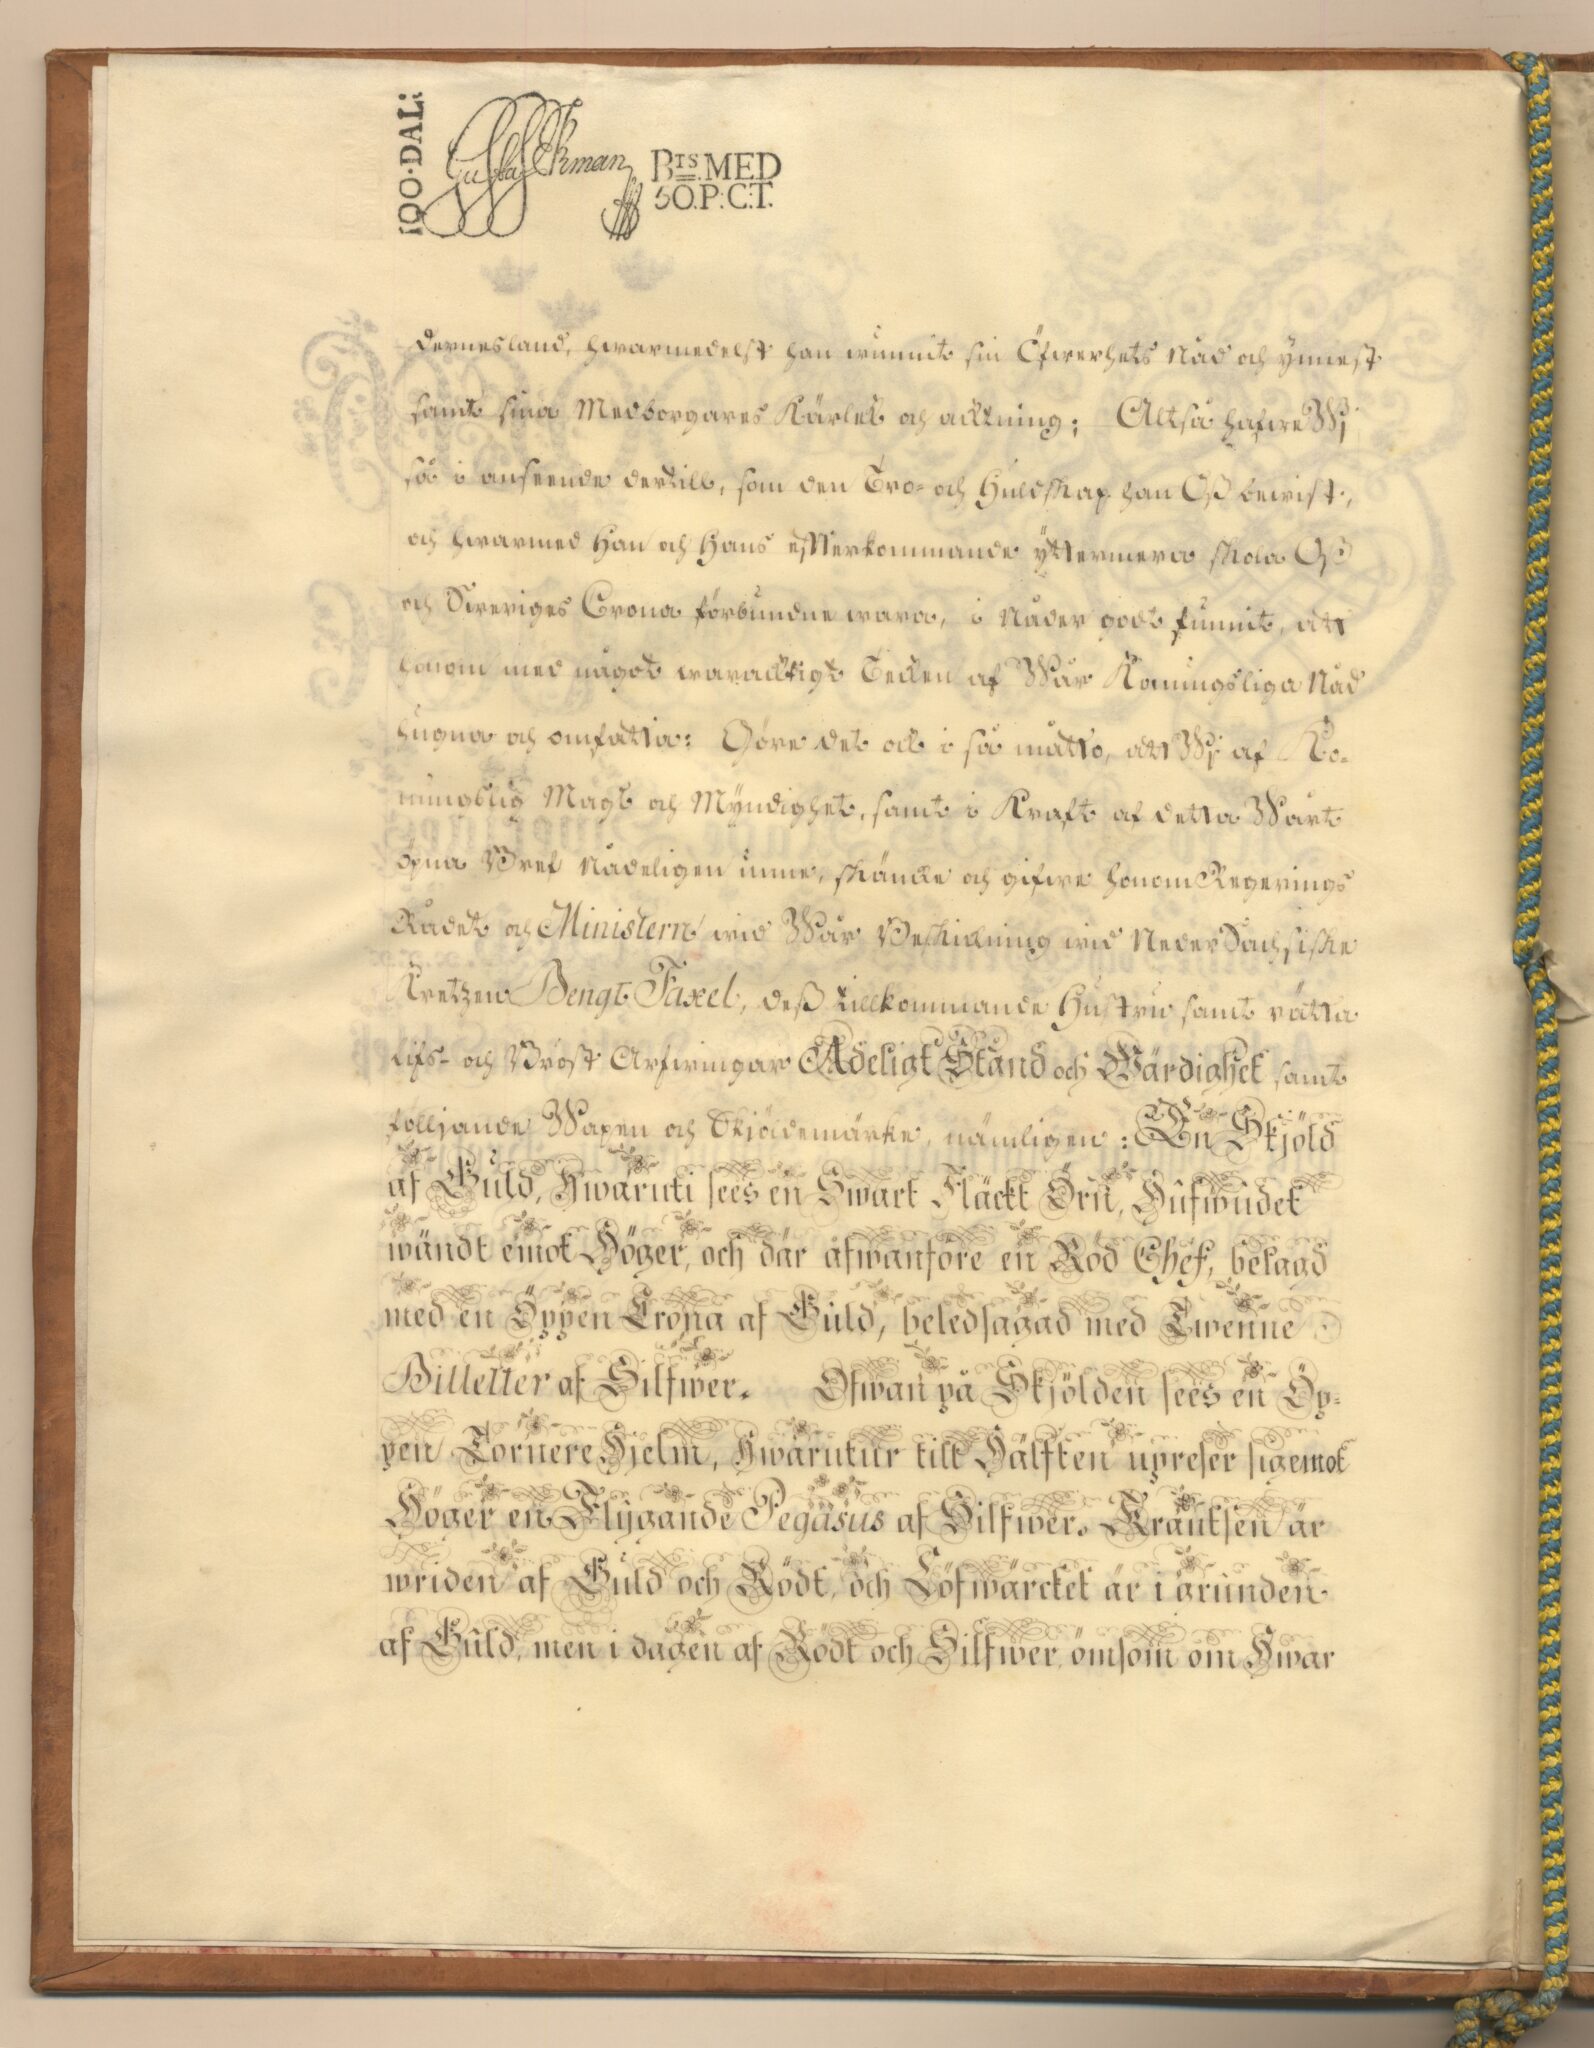 100·DAL:
Gust: Ekman
Bts MED
50.P:C:T.
dernesland, hwarmedelst han wunnit sin Öfwerhets Nåd och ynnest
samt sina Medborgares Kärlek och acktning; Altså hafwe Wj
så i anseende dertill, som den Tro- och Huldskap han Oß bewist,
och hwarmed Han och Hans efterkommande ÿttermera skola Oß
och Sweriges Crona förbundne wara, i Nåder godt funnit, att
honom med något waracktigt Tecken af Wår Konungsliga Nåd
hugna och omfatta: Göre det ock i så matto, att Wj af Ko-
nungslig Magt och Mÿndighet, samt i Kraft af detta Wårt
öpna Bref Nådeligen unne, skäncke och gifwe honom Regerings
Rådet och Ministern wid Wår Beskickning wid NederSachsiske
Kretzen Bengt Faxel, deß tillkommande Hustru samt rätta
Lifs- och Bröst Arfwingar Adeligt Stånd och Wärdighet samt
följande Wapen och Skjöldemärke, nämligen: En Skjöld
af Guld, Hwaruti sees en Swart Fläckt Örn, Hufwudet
wändt emot Höger, och där ofwanföre en Röd Chef, belagd
med en Öppen Crona af Guld, beledsagad med Twenne
Billetter af Silfwer. Ofwan på Skjölden sees en Öp-
pen Tornere Hjelm, Hwarutur till Hälften upreser sig emot
Höger en Flÿgande Pegasus af Silfwer. Krantsen är
wriden af Guld och Rödt, och Löfwärcket är i grunden
af Guld, men i dagen af Rödt och Silfwer, ömsom om Hwar